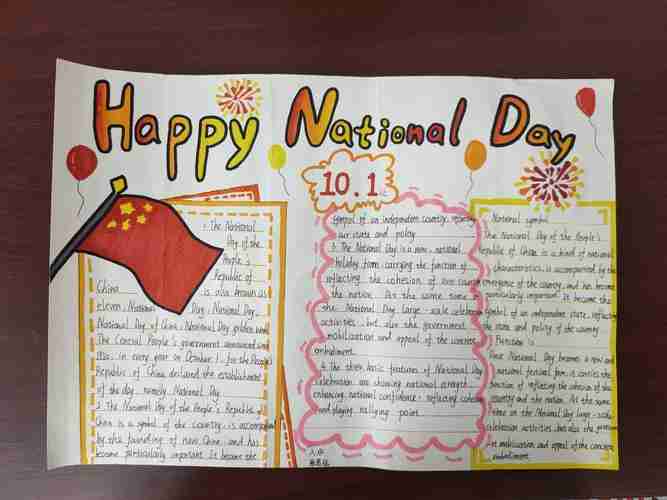 Happy National Day
10.1
1. The National
Day of the
People's
Republic of
China is also known as
eleven, National Day, National Day,
National Day of China, National Day golden week.
The Central People's government announced
in every year on October 1, for the People's
Republic of China declared the establishment
of the day, namely National Day.
2. The National Day of the People's Republic of
China is a symbol of the country, is accompanied
by the founding of new China, and has
become particularly important. It became the
symbol of an independent country, reflecting
our state and policy.
3. The National Day is a new, national
holiday form, carrying the function of
reflecting the cohesion of our country,
the nation. At the same time,
the National Day large-scale celebration
activities, but also the government
mobilization and appeal of the concrete
embodiment.
4. The three basic features of National Day
celebration are showing national strength,
enhancing national confidence, reflecting cohesion
and playing rallying point.
National symbol
The National Day of the People's
Republic of China is a kind of national
characteristics, is accompanied by the
emergence of the country, and has become
particularly important. It became the
symbol of an independent state, reflecting
the state and polity of the country.
Function is
Once National Day becomes a new and
national festival form, it carries the
function of reflecting the cohesion of the
country and the nation. At the same
time on the National Day large-scale
celebration activities, but also the government
mobilization and appeal of the concrete
embodiment.